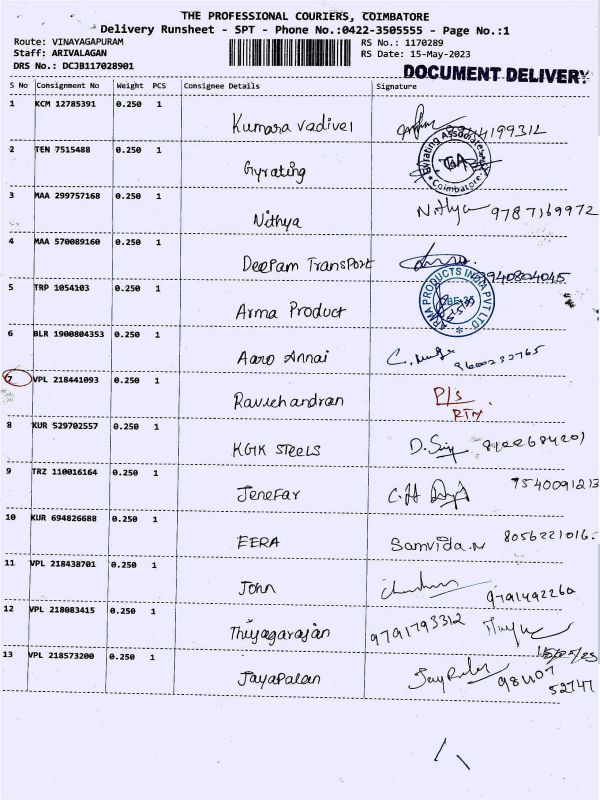 THE PROFESSIONAL COURIERS, COIMBATORE
Delivery Runsheet - SPT - Phone No.:0422-3505555 - Page No.:1
Route: VINAYAGAPURAM RS No.: 1170289
Staff: ARIVALAGAN RS Date: 15-May-2023
DRS No.: DCJB117028901
DOCUMENT DELIVERY
S No Consignment No Weight PCS Consignee Details Signature
1 KCM 12785391 0.250 1
Kumara vadivel
2 TEN 7515488 0.250 1
Gyrating Gyrating Associates Coimbatore
3 MAA 299757168 0.250 1
Nithya Nithya 9787169972
4 MAA 570089160 0.250 1
Deepam Transport 9940804045
5 TRP 1054103 0.250 1
Arma Product ARMA PRODUCTS INDIA PVT LTD
6 BLR 1900804353 0.250 1
Aaro Annai 9600232765
7 VPL 218441093 0.250 1
Ravichandran P/s
RTN
8 KUR 529702557 0.250 1
KGK STEELS
9 TRZ 110016164 0.250 1
Jenefar 7540091213
10 KUR 694826688 0.250 1
EERA Samvida.N 8056221016
11 VPL 218438701 0.250 1
John 9791492260
12 VPL 218083415 0.250 1
Thiyagarajan 9791793312
15/05/23
13 VPL 218573200 0.250 1
Jayapalan 98407
52747